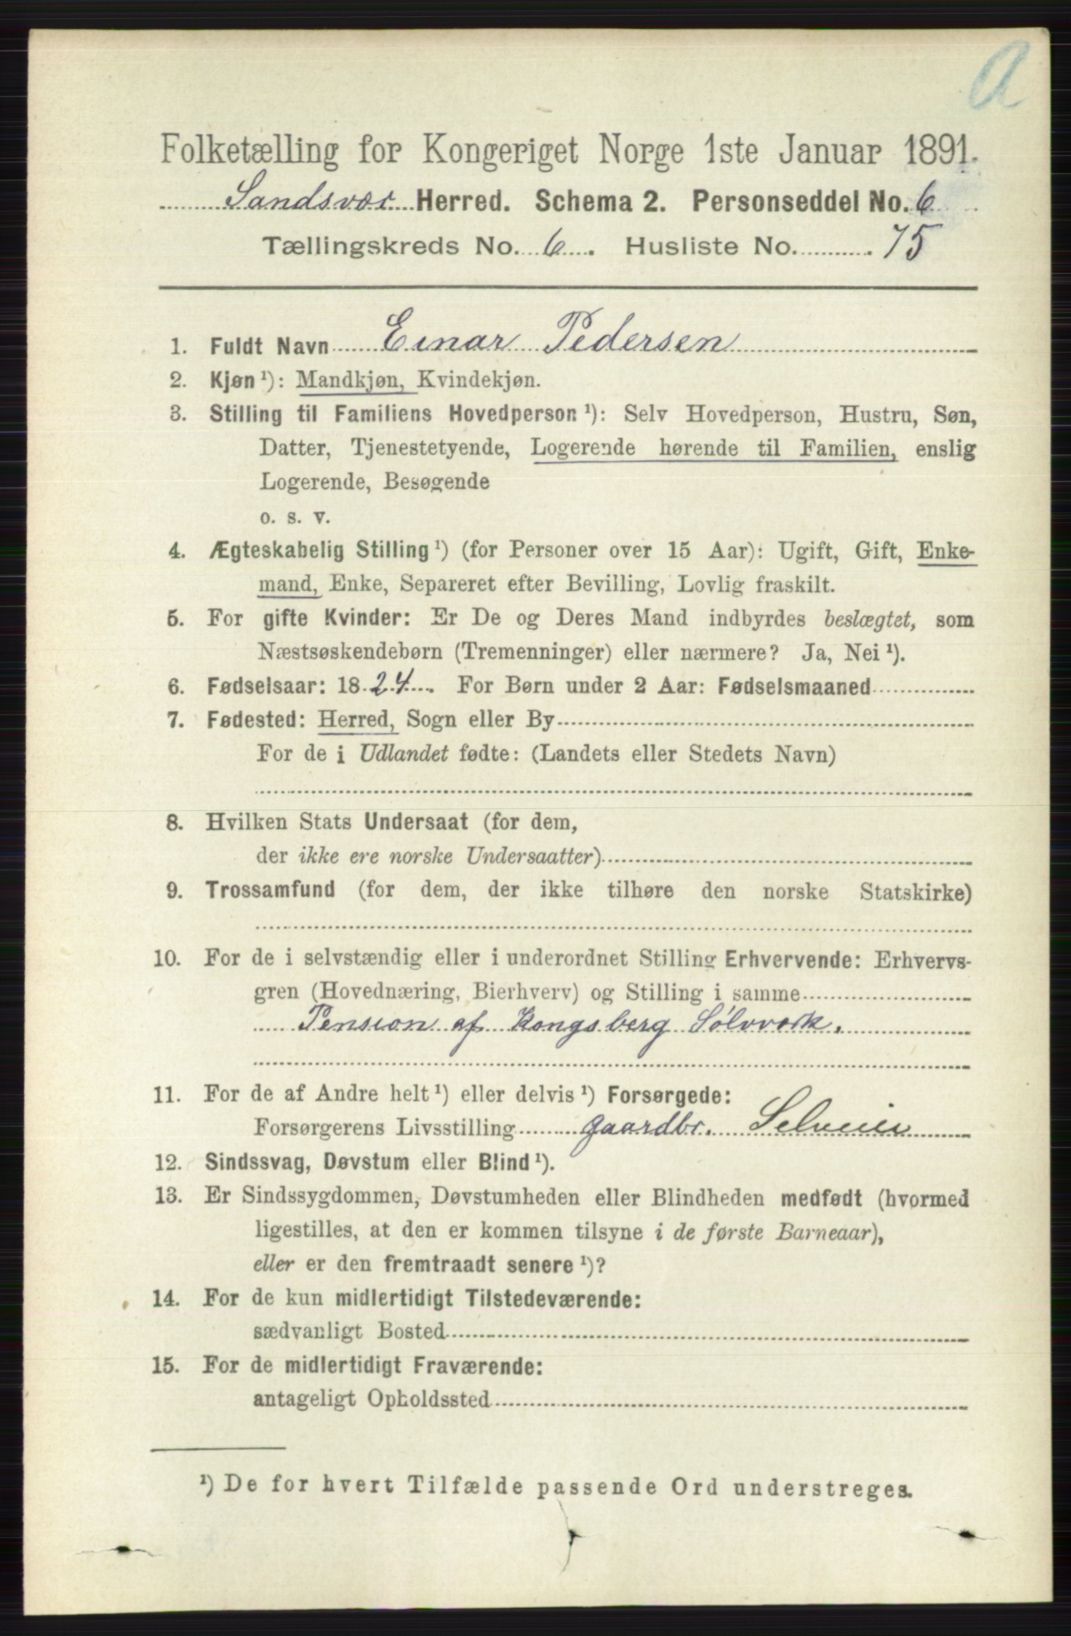 A
Folketælling for Kongeriget Norge 1ste Januar 1891.
Sandsvær Herred. Schema 2. Personseddel No. 6
Tællingskreds No. 6. Husliste No. 75
1. Fuldt Navn Einar Pedersen
2. Kjøn ¹): Mandkjøn, Kvindekjøn.
3. Stilling til Familiens Hovedperson ¹): Selv Hovedperson, Hustru, Søn,
Datter, Tjenestetyende, Logerende hørende til Familien, enslig
Logerende, Besøgende
o. s. v.
4. Ægteskabelig Stilling ¹) (for Personer over 15 Aar): Ugift, Gift, Enke-
mand, Enke, Separeret efter Bevilling, Lovlig fraskilt.
5. For gifte Kvinder: Er De og Deres Mand indbyrdes beslægtet, som
Næstsøskendebørn (Tremenninger) eller nærmere? Ja, Nei ¹).
6. Fødselsaar: 1824. For Børn under 2 Aar: Fødselsmaaned
7. Fødested: Herred, Sogn eller By
For de i Udlandet fødte: (Landets eller Stedets Navn)
8. Hvilken Stats Undersaat (for dem,
der ikke ere norske Undersaatter)
9. Trossamfund (for dem, der ikke tilhøre den norske Statskirke)
10. For de i selvstændig eller i underordnet Stilling Erhvervende: Erhvervs-
gren (Hovednæring, Bierhverv) og Stilling i samme
Pension af Kongsberg Sølvværk.
11. For de af Andre helt ¹) eller delvis ¹) Forsørgede:
Forsørgerens Livsstilling gaardbr. Selveier
12. Sindssvag, Døvstum eller Blind ¹).
13. Er Sindssygdommen, Døvstumheden eller Blindheden medfødt (hvormed
ligestilles, at den er kommen tilsyne i de første Barneaar),
eller er den fremtraadt senere ¹)?
14. For de kun midlertidigt Tilstedeværende:
sædvanligt Bosted
15. For de midlertidigt Fraværende:
antageligt Opholdssted
¹) De for hvert Tilfælde passende Ord understreges.